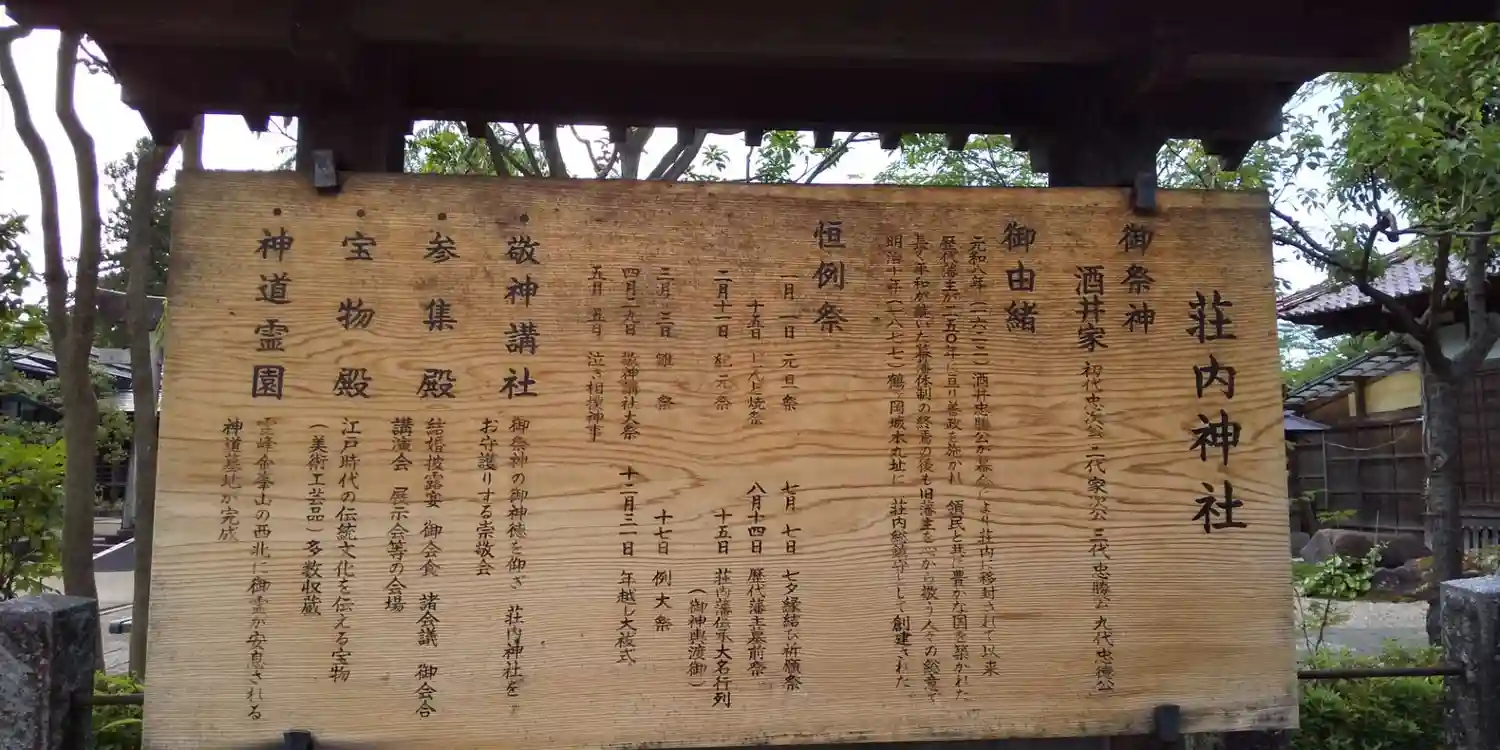 荘内神社
御祭神
酒井家 初代忠次公 二代家次公 三代忠勝公 九代忠徳公
御由緒
元和八年(一六二二)酒井忠勝公が幕命により荘内に移封されて以来
歴代藩主が二五〇年に亘り善政を施かれ 領民と共に豊かな国を築かれた
長く平和が続いた幕藩体制の終焉の後も旧藩主を心から敬う人々の総意で
明治十年(一八七七)鶴ヶ岡城本丸址に 荘内総鎮守として創建された
恒例祭
一月一日 元旦祭
十五日 どんど焼祭
二月十一日 紀元祭
三月三日 雛祭
四月二九日 敬神講社大祭
五月五日 泣き相撲神事
七月七日 七夕縁結び祈願祭
八月十四日 歴代藩主墓前祭
十五日 荘内藩伝承大名行列
(御神輿渡御)
十七日 例大祭
十二月三一日 年越し大祓式
・敬神講社
御祭神の御神徳を仰ぎ 荘内神社を
お守護りする崇敬会
・参集殿
結婚披露宴 御会食 諸会議 御会合
講演会 展示会等の会場
・宝物殿
江戸時代の伝統文化を伝える宝物
(美術工芸品)多数収蔵
・神道霊園
霊峰金峯山の西北に御霊が安息される
神道墓地が完成